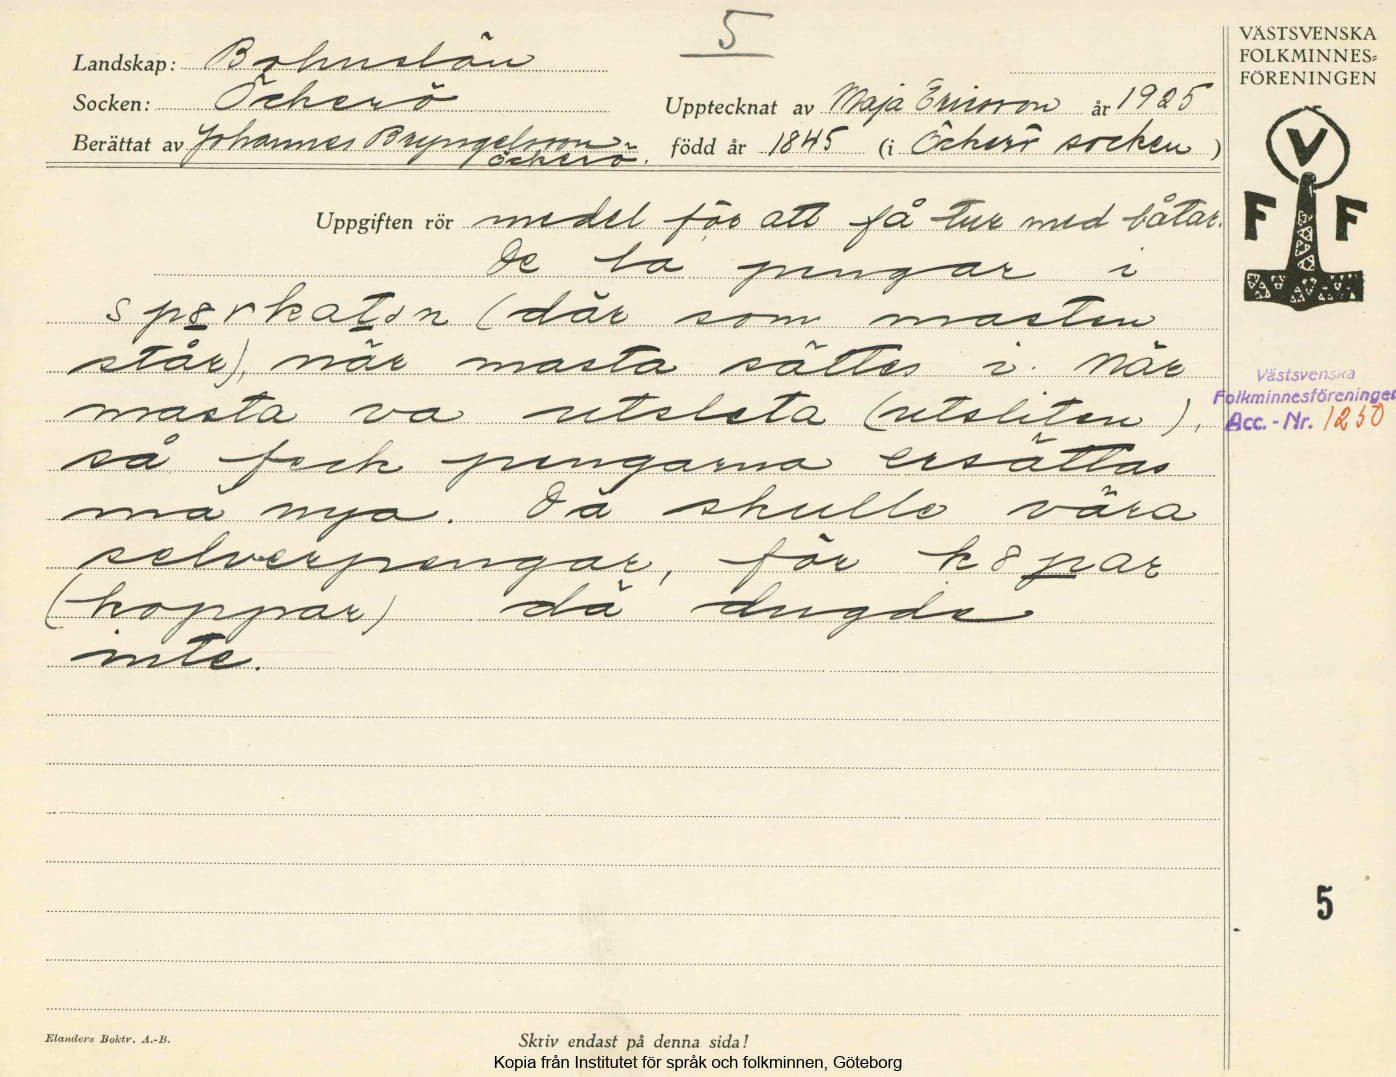 5
Landskap: Bohuslän
Socken: Öckerö
Upptecknat av Maja Ericsson år 1925
Berättat av Johannes Bryngelsson
Öckerö.
född år 1845 (i Öckerö socken)
Uppgiften rör medel för att få tur med båtar.
De la pengar i
sp8rkaton (där som masten
står), när masta sättes i. När
masta va utsleta (utsliten),
så feck pengarna ersättas
må nya. Dä skulle vära
selverpengar, för k8par
(koppar) dä dugde
inte.
VÄSTSVENSKA
FOLKMINNES=
FÖRENINGEN
V
F F
Västsvenska
Folkminnesföreningen
Acc.-Nr. 1250
5
Elanders Boktr. A.-B.
Skriv endast på denna sida!
Kopia från Institutet för språk och folkminnen, Göteborg